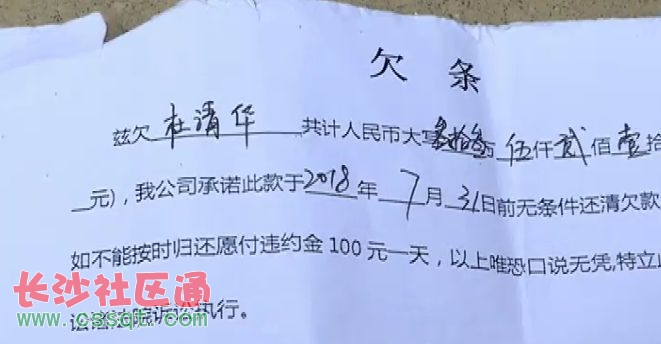 欠 条
兹欠 杜清华 共计人民币大写叁拾叁万 伍仟 贰佰 壹拾
元),我公司承诺此款于2018年 7月 31日前无条件还清欠款
如不能按时归还愿付违约金100元一天,以上唯恐口说无凭,特立此
法院诉讼执行。
长沙社区通
www.cssqt.com